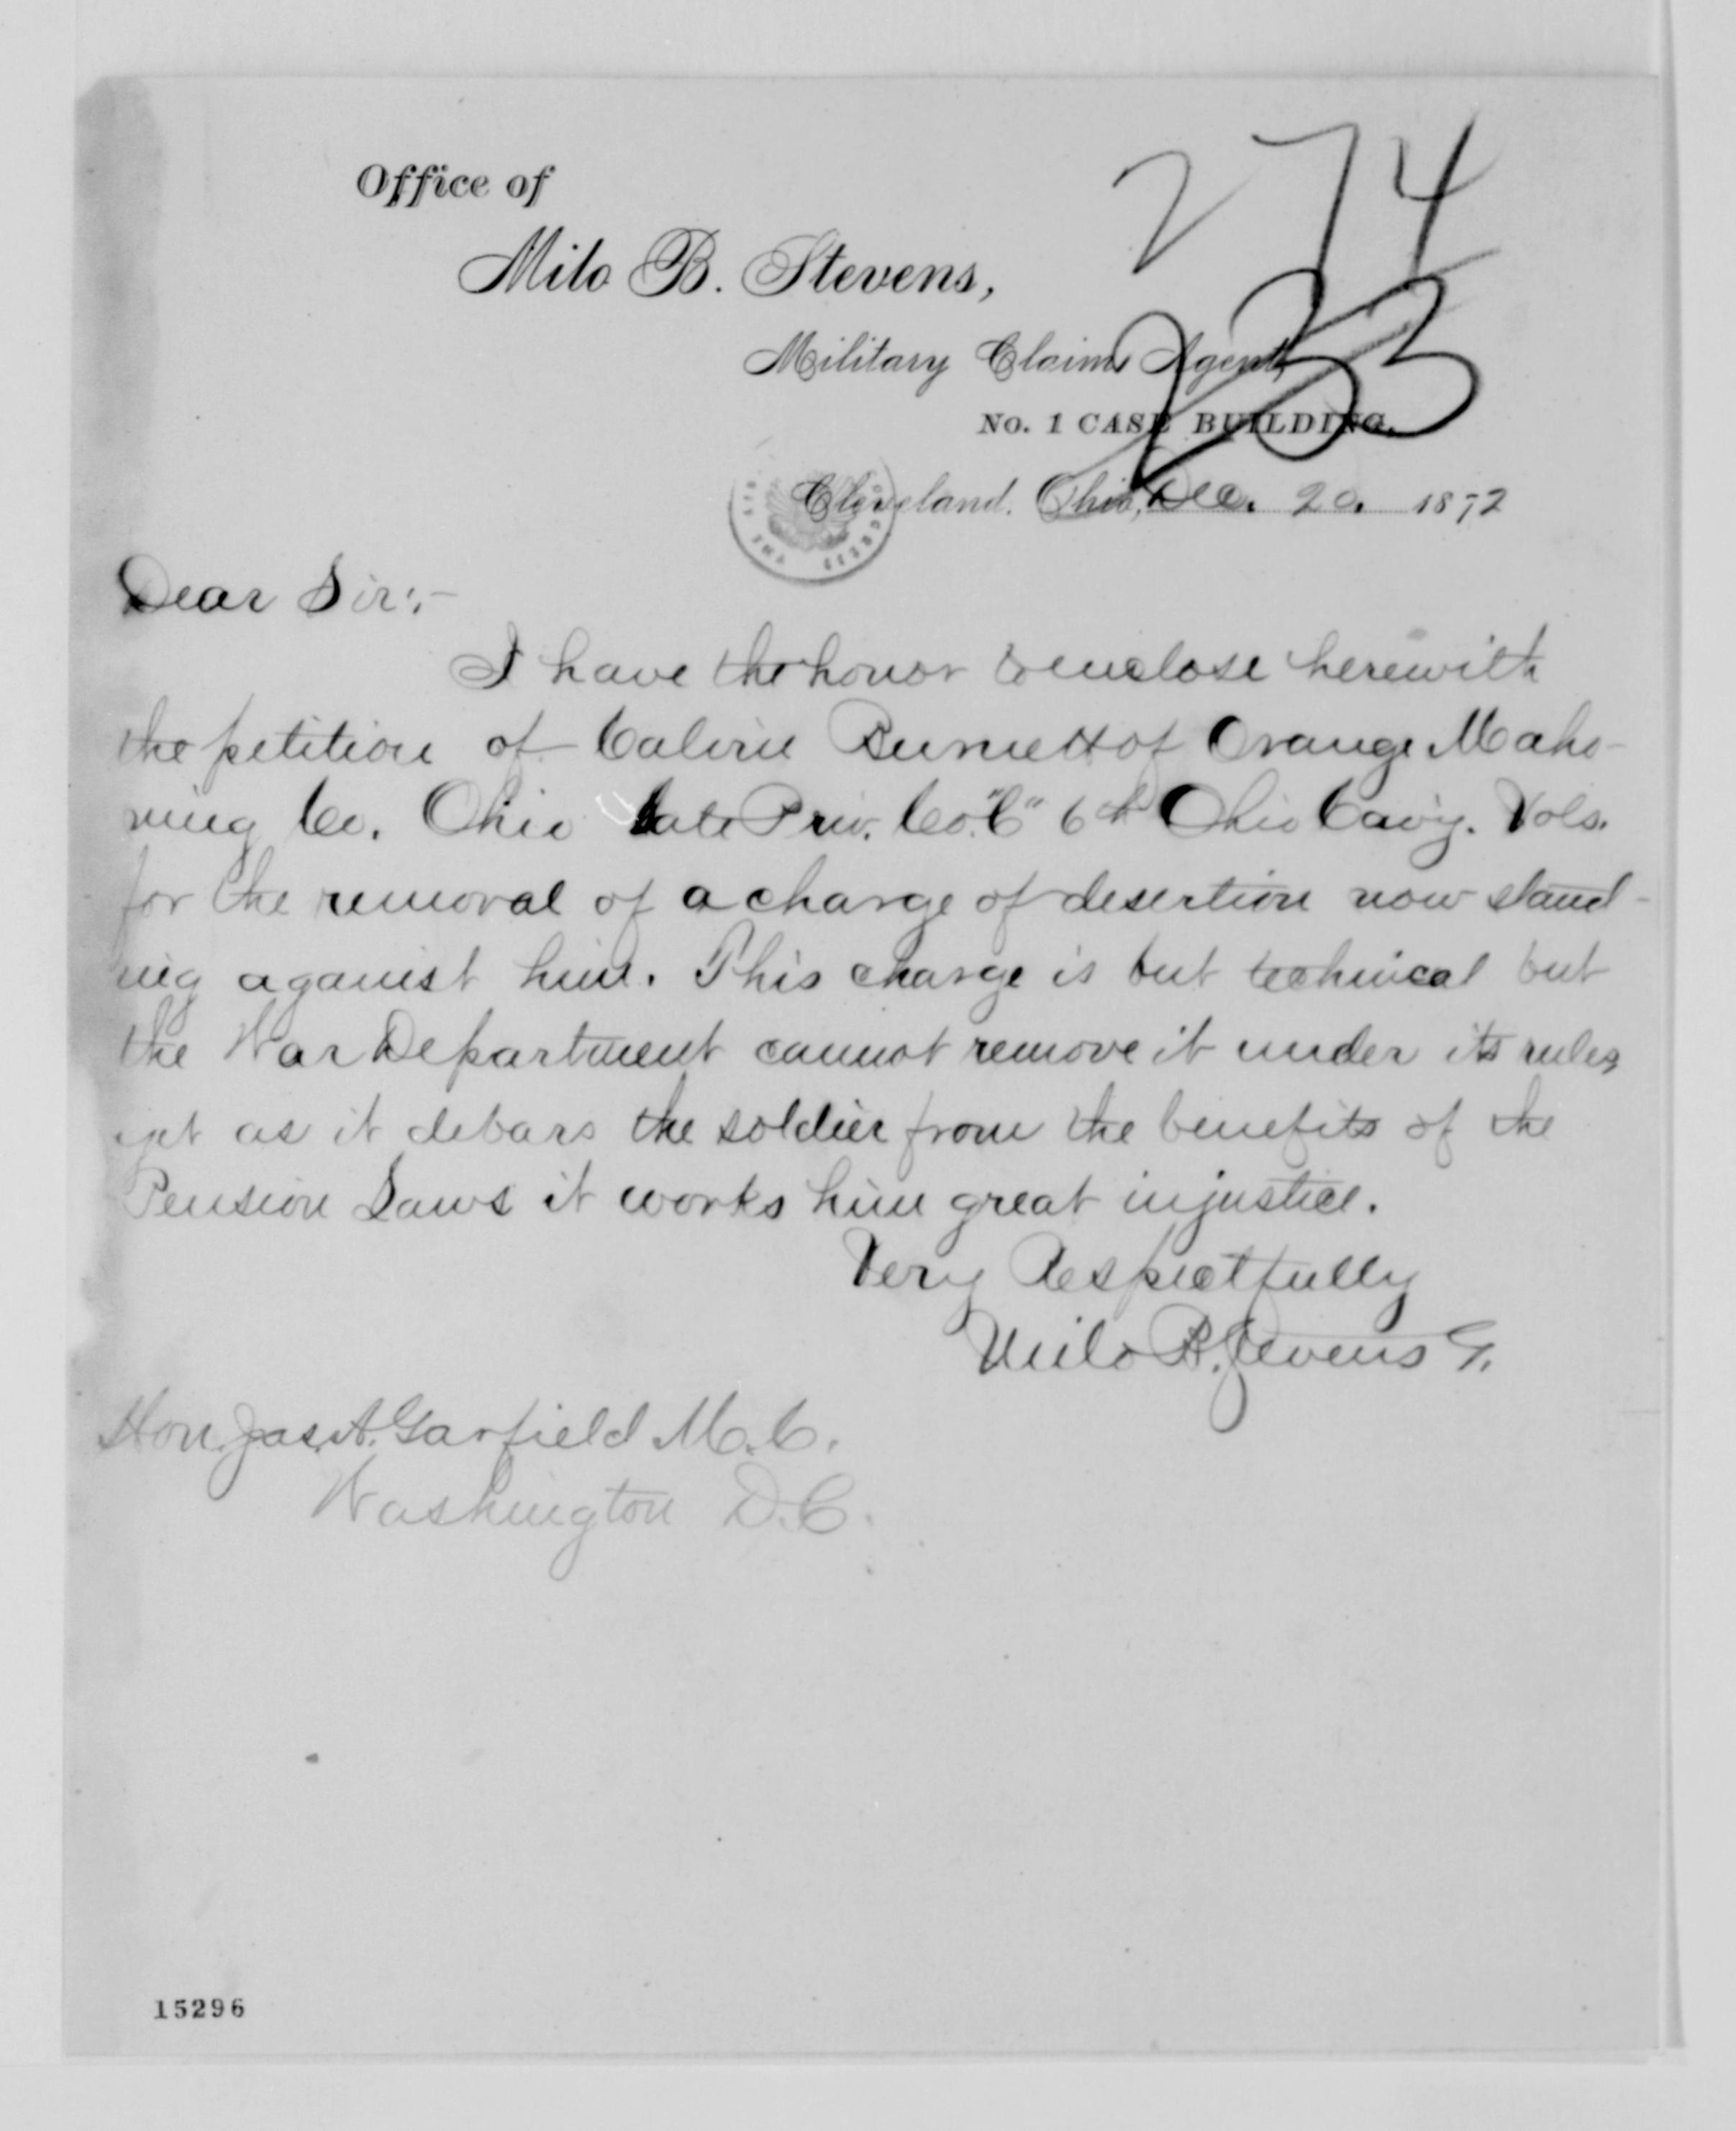 274
Office of
Milo B. Stevens,
233
Military Claim Agent,
No. 1 CASE BUILDING.
Cleveland. Ohio, Dec. 20. 1872
Dear Sir:-
I have the honor to enclose herewith
the petition of Calvin Burnett of Orange Maho-
ning Co. Ohio late Priv. Co. "C" 6th Ohio Cav'y. Vols.
for the removal of a charge of desertion now stand-
ing against him. This charge is but technical but
the War Department cannot remove it under its rules
yet as it debars the soldier from the benefits of the
Pension Laws it works him great injustice.
Very Respectfully
Milo B. Stevens
Hon. Jas. A. Garfield M.C.
Washington D.C.
15296